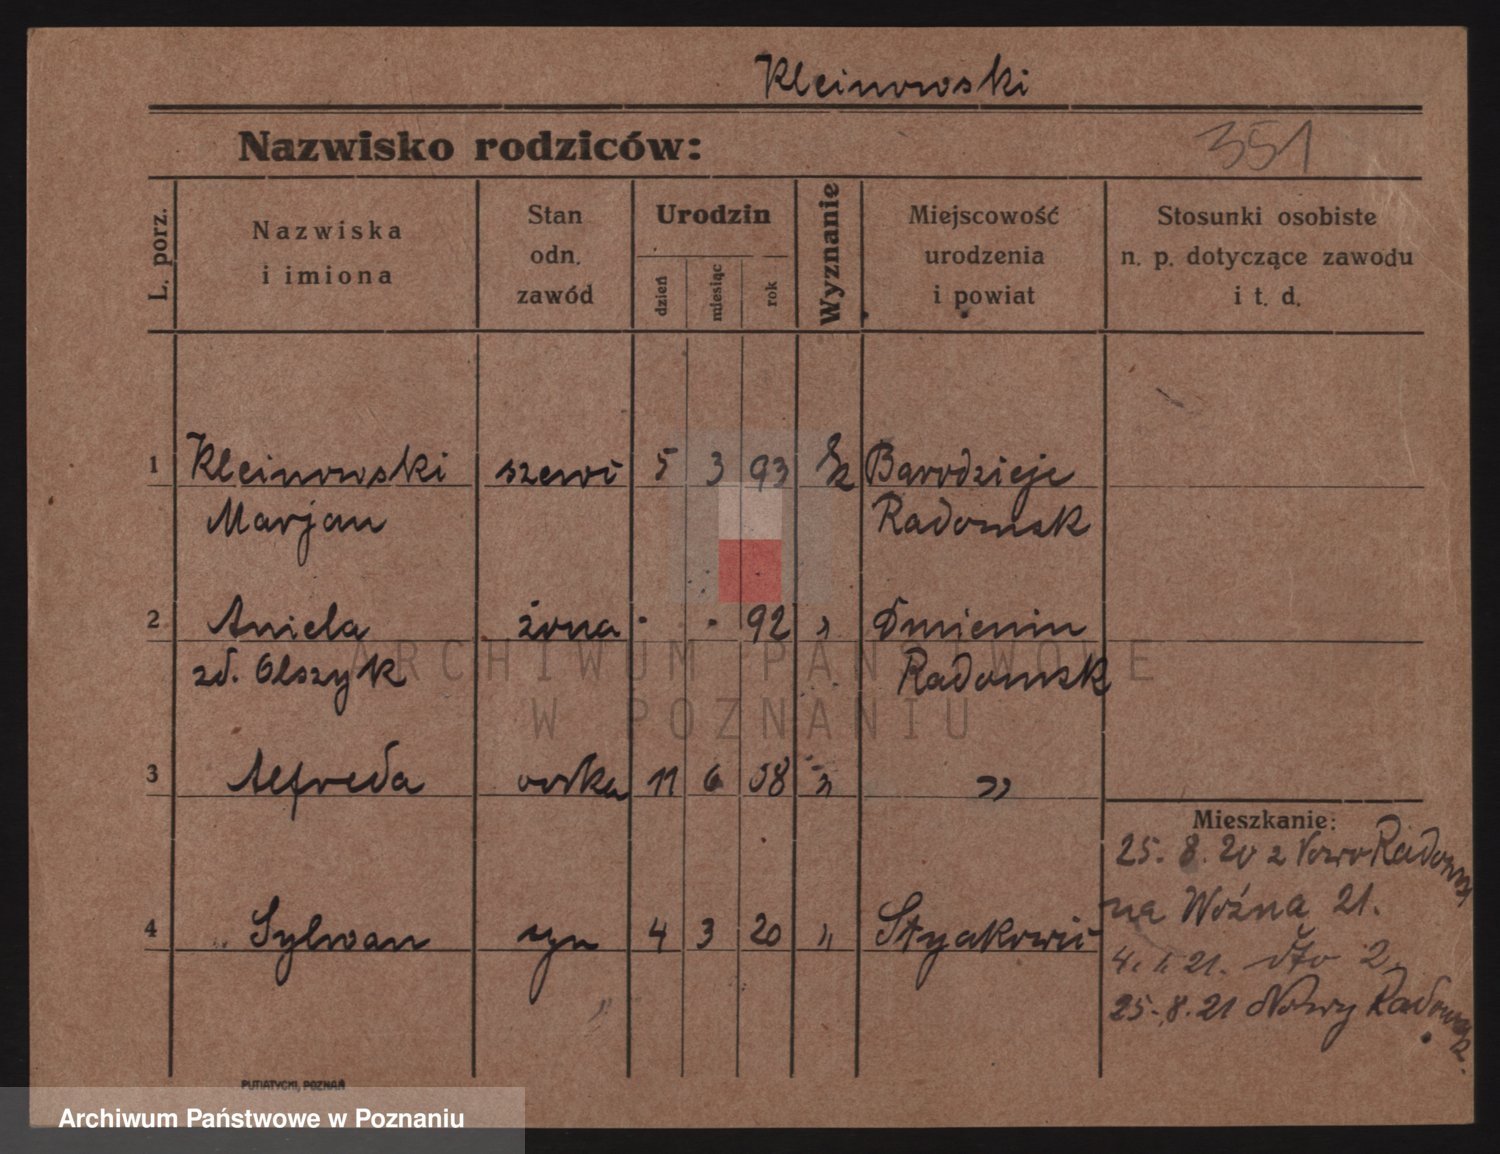 Kleinowski
Nazwisko rodziców:
351
L. porz.
Nazwiska
i imiona
Stan
odn.
zawód
Urodzin
dzień
miesiąc
rok
Wyznanie
Miejscowość
urodzenia
i powiat
Stosunki osobiste
n. p. dotyczące zawodu
i t. d.
1 Kleinowski szewc 5 3 93 Barodzieje
Marjan Radomsk
2 Aniela żona 92 " Dmienin
zd. Olszyk Radomsk
3 Alfreda córka 11 6 08 " "
Mieszkanie:
25. 8. 20 z Nowo Radomsk
na Woźna 21.
4 Sylwan syn 4 3 20 "
4. 1. 21. dto 2
25. 8. 21 Nowy Radomsk.
PUTIATYCKI, POZNAŃ
ARCHIWUM PAŃSTWOWE
W POZNANIU
Archiwum Państwowe w Poznaniu